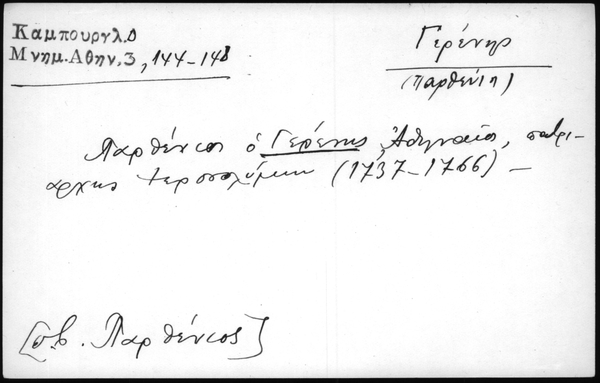 Καμπουργλ.Δ
Μνημ.Αθην.3, 144-148
Γερένης
(Παρθένιος)
Παρθένιος ὁ Γερένης, Ἀθηναῖος, πατρι-
άρχης Ἱεροσολύμων (1737-1766) –
[πβ. Παρθένιος]